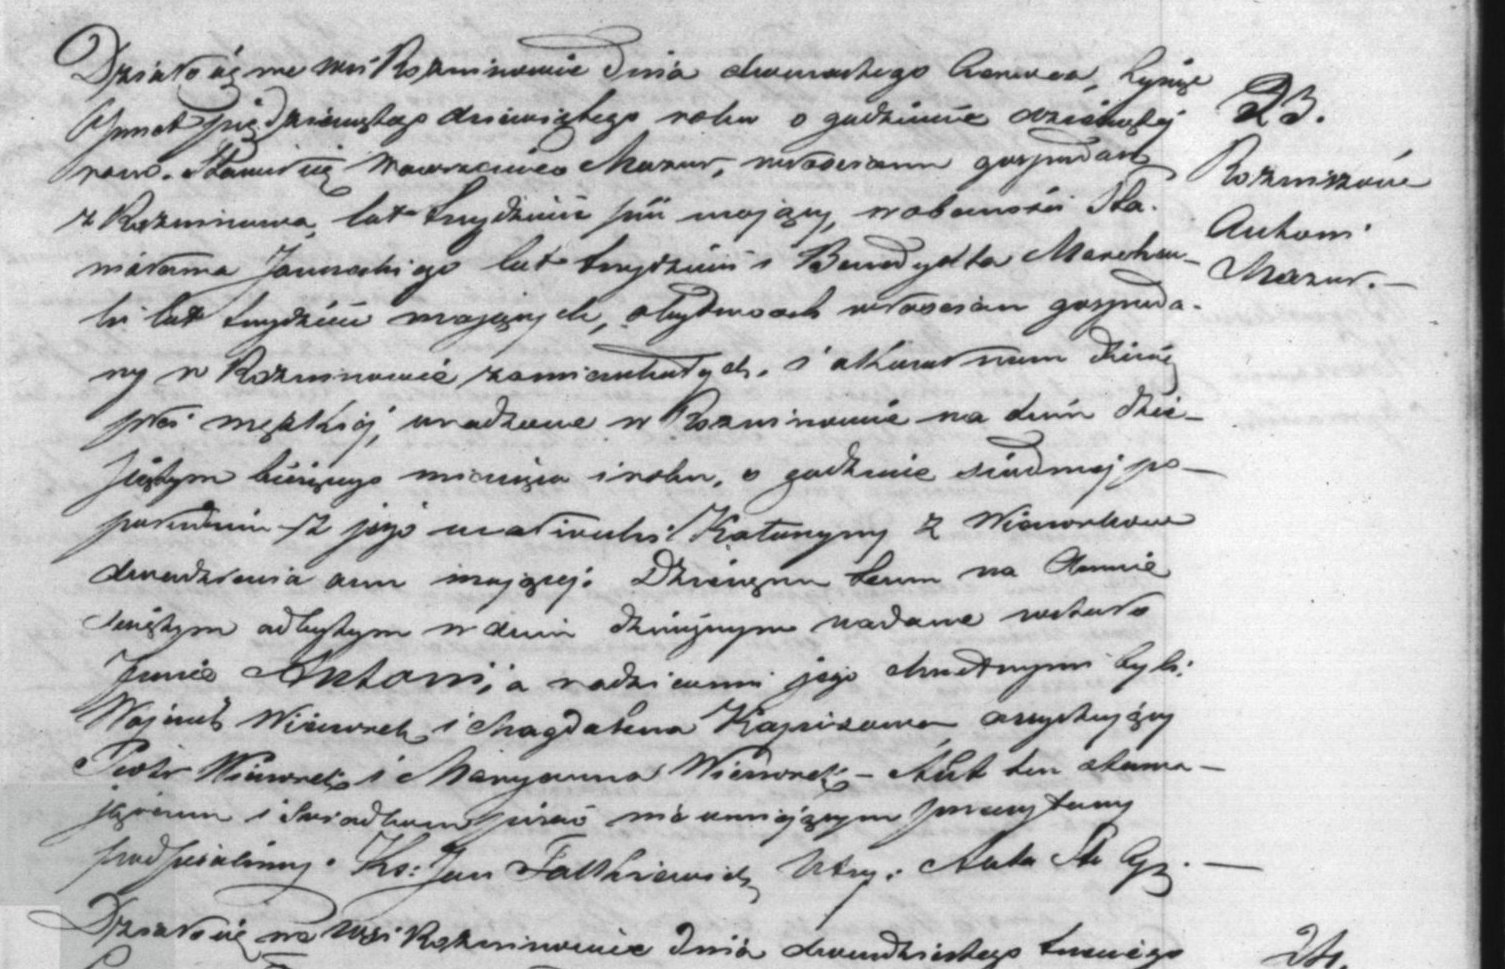 Działo się we wsi Rozniszowie dnia dwunastego Czerwca, tysiąc
ośmset pięćdziesiątego dziewiątego roku o godzinie dziesiątej
rano. Stawił się Wawrzeniec Mazur, włościanin gospodarz
z Rozniszewa, lat trzydzieści pięć mający, w obecności Sta-
nisława Janeckiego lat trzydzieści i Benedykta
lat trzydzieści mających, obydwóch włościan gospoda-
rzy w Rozniszowie zamieszkałych. i okazał nam dziecię
płci męzkiéj, urodzone w Rozniszowie na dniu dzie-
siątym bieżącego miesiąca i roku, o godzinie siódmej po-
południu z jego małżonki Katarzyny z Wiewiorków
dwadzieścia mającej. Dziecięciu temu na Chrzcie
świętym odbytym w dniu dzisiejszym nadane zostało
Jmie Antoni, a rodzicami jego chrzestnymi byli:
Wojciech Wiewiorek i Magdalena assystujący
Piotr Wiewiorek i Maryanna Wiewiorek – Akt ten stawa-
jącemu i świadkom pisać nie umiejącym przeczytany
podpisaliśmy. Ks: Jan Falkiewicz Utrz: Akta St: Cy: —
Działo się we wsi Rozniszowie dnia dwudziestego trzeciego
23.
Rozniszów
Antoni
Mazur. —
24.